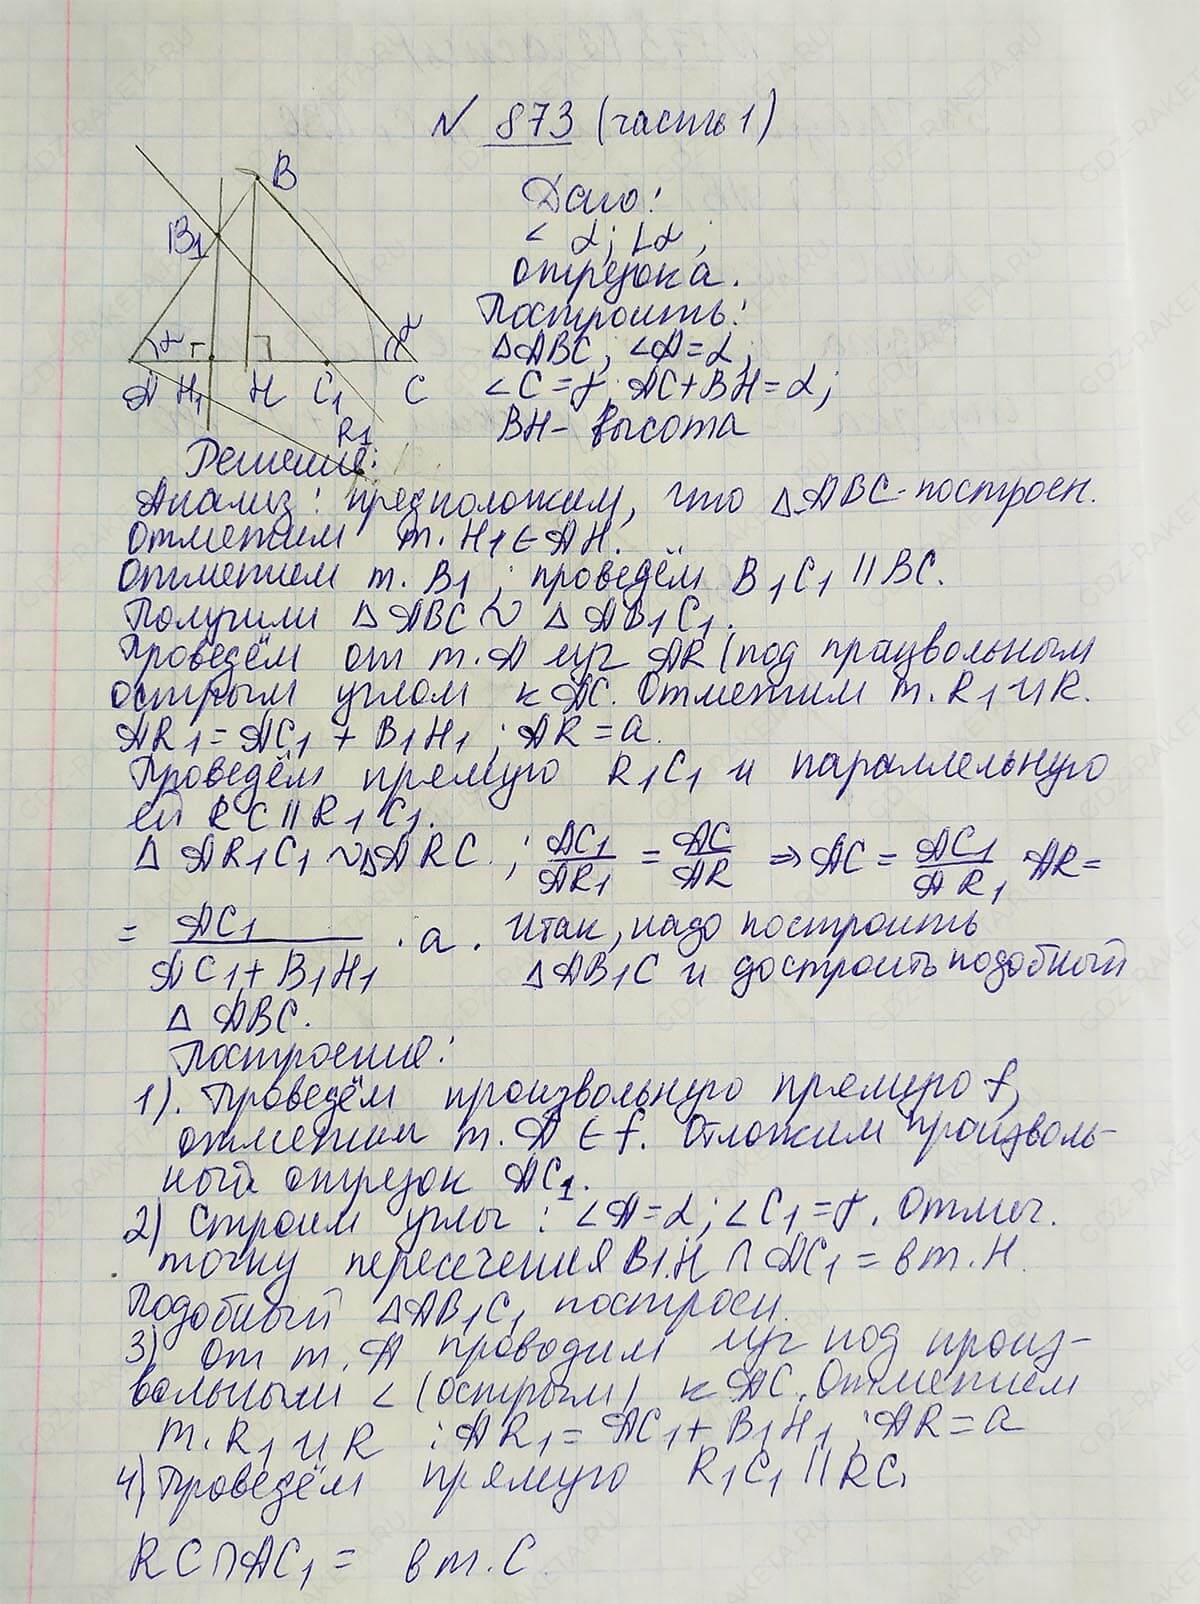 N 873 (часть 1)
B
B1
α
A H1 H C1 C
R1
Дано:
∠ α; ∠α;
отрезок а.
Построить:
△ABC, ∠A=α;
∠C=γ; AC+BH=α;
BH- высота
Решение:
Анализ: предположим, что △ABC-построен.
Отметим т. H1∈AH.
Отметим т. B1; проведём B1C1 || BC.
Получили △ABC ~ △AB1C1.
Проведём от т. A луч AR (под працвольным
острым углом к AC. Отметим т. R1 и R.
AR1 = AC1 + B1H1; AR = a.
Проведём прямую R1C1 и параллельную
ей RC || R1C1.
△ AR1C1 ~ △ARC; AC1/AR1 = AC/AR ⇒ AC = AC1/AR1 AR=
= AC1/(AC1+B1H1) · a. Итак, надо построить
△AB1C и достроить подобный
△ ABC.
Построение:
1). Проведём произвольную прямую f,
отметим т. A ∈ f. Отложим произволь-
ный отрезок AC1.
2) Строим углы: ∠A=α; ∠C1=γ. Отмеч.
точку пересечения B1H ∩ AC1 = в т. H.
Подобный △AB1C1 построен.
3) От т. A проводим луч под произ-
вольным ∠ (острым) к AC. Отметим
т. R1 и R; AR1 = AC1 + B1H1; AR = a
4) Проведём прямую R1C1 || RC.
RC ∩ AC1 = в т. C.
GDZ-RAKETA.RU